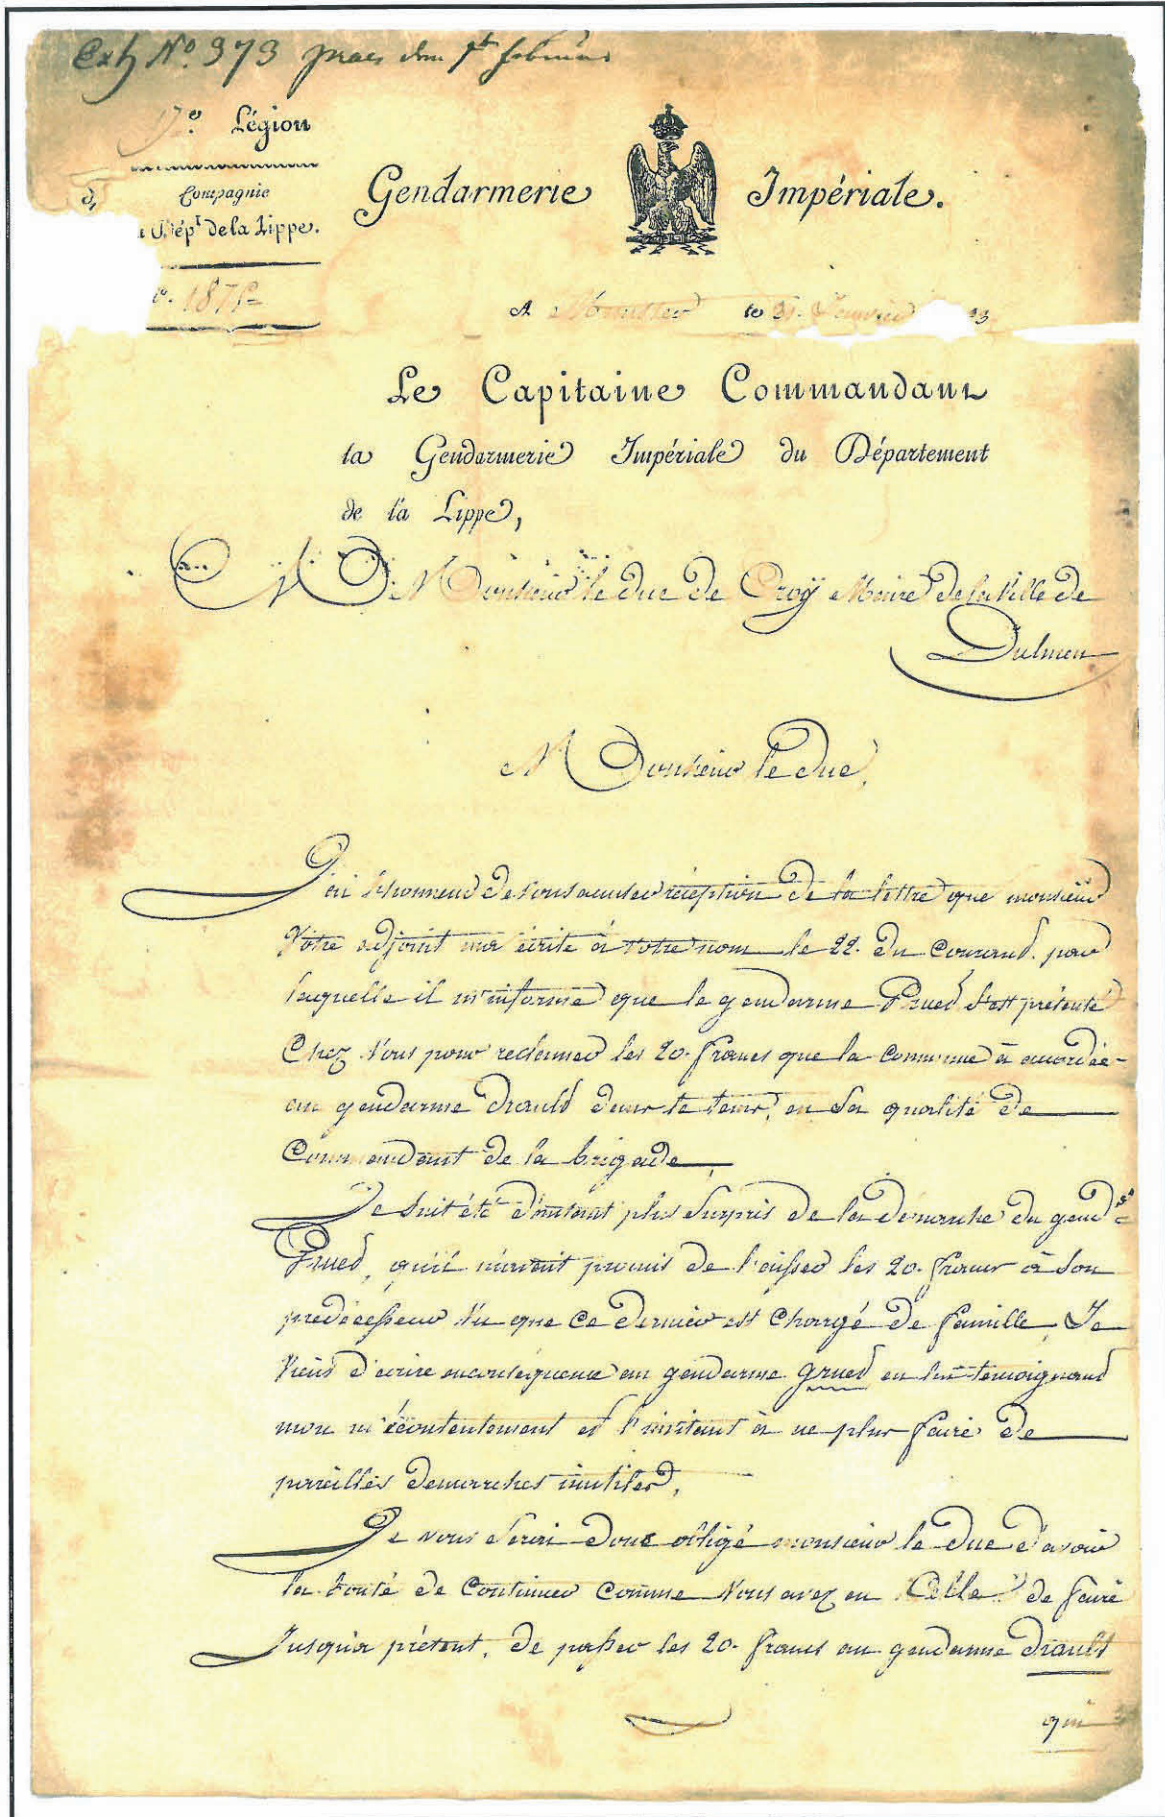 Exh No. 373 praes den 1t februar
Légion
Compagnie
Dépt de la Lippe.
Gendarmerie Impériale.
A Munster le 31. Janvier 13
Le Capitaine Commandant
la Gendarmerie Impériale du Département
de la Lippe,
A Monsieur le duc de Croÿ Maire de la Ville de
Dulmen
Monsieur le Duc,
J'ai l'honneur de vous accuser réception de la lettre que monsieur
Votre adjoint m'a écrite à votre nom le 22. du Courant. par
laquelle il m'informe que le gendarme Gruet s'est présenté
Chez Vous pour reclamer les 20. francs que la Commune à accordée
au gendarme Drault dans le tems, en Sa qualité de
Commandant de la brigade.
Je suit été d'autant plus Surpris de la demarche du gend.e
Gruet, qu'il m'avoit promis de laisser les 20. francs à Son
predécesseur Vu que Ce Dernier est Chargé de famille. Je
Viens d'écrire en conséquence au gendarme Gruet en lui temoignant
mon mécontentement et l'invitant à ne plus faire de
pareilles demarches inutiles.
Je vous Serai donc obligé monsieur le Duc d'avoir
la bonté de Continuer Comme Vous avez eu Celle de faire
Jusqu'à présent, de passer les 20. francs au gendarme Drault
qui